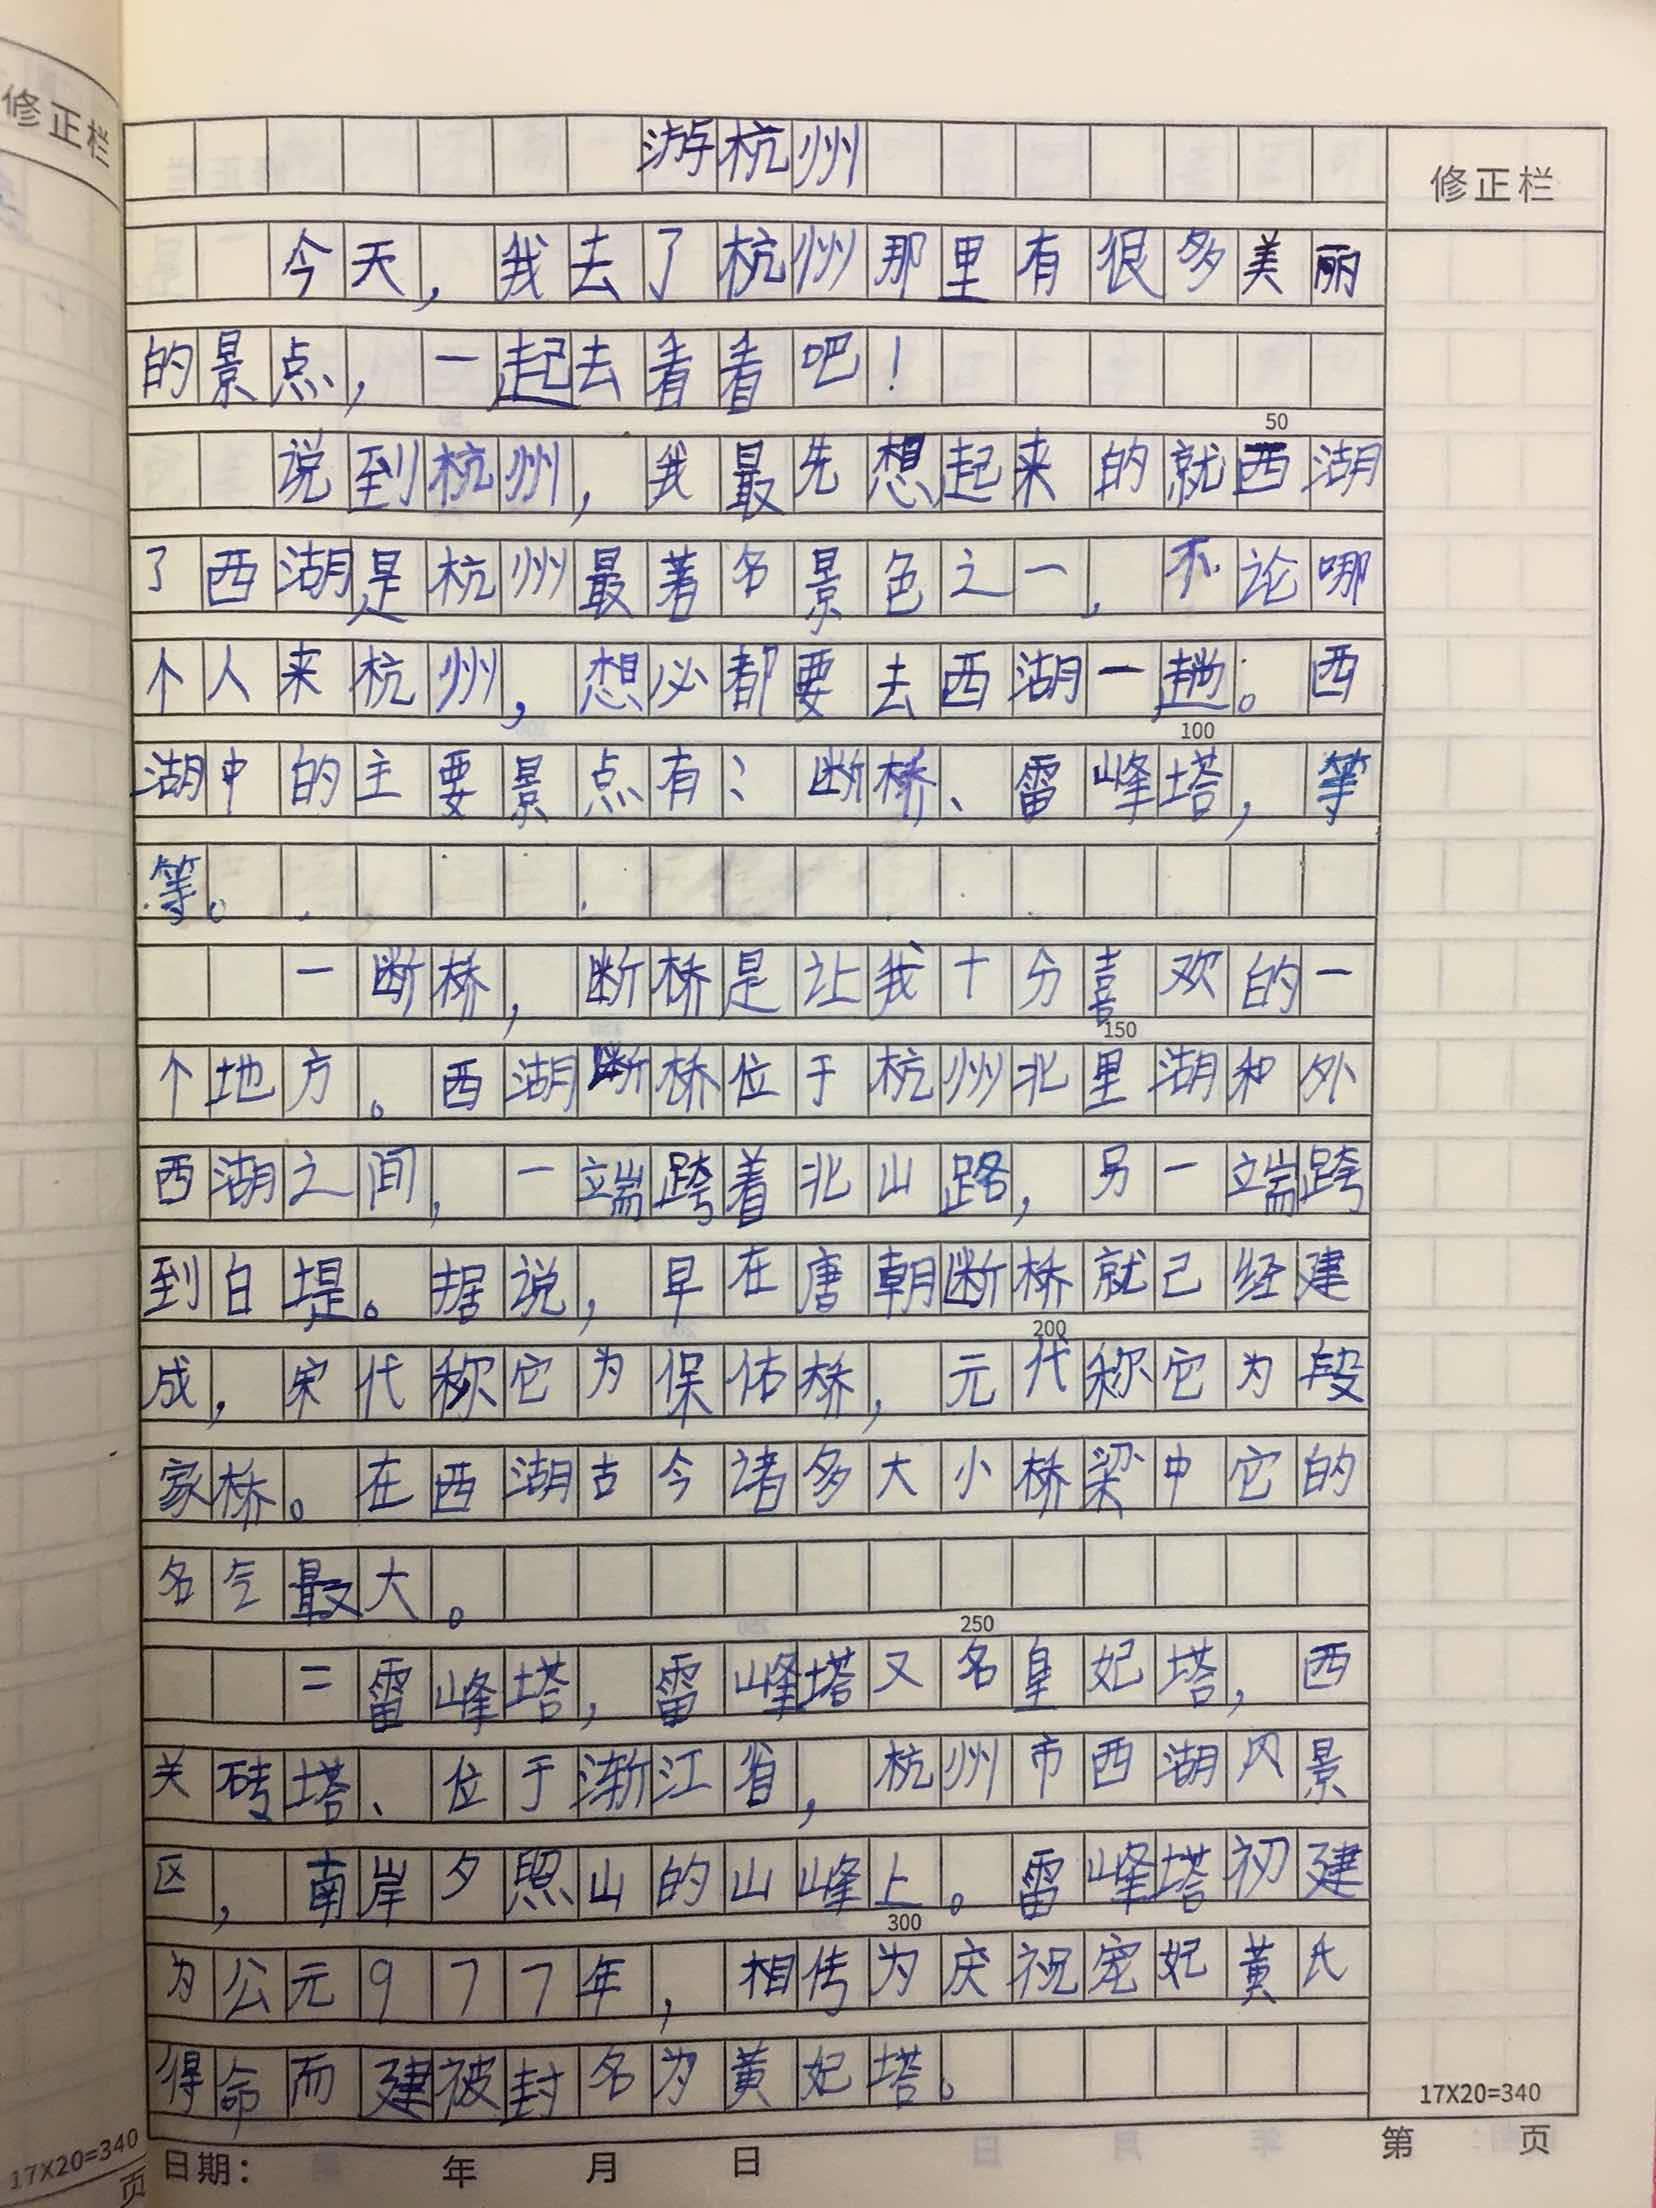 修正栏
游杭州
修正栏
今天，我去了杭州那里有很多美丽
的景点，一起去看看吧！
50
说到杭州，我最先想起来的就西湖
了西湖是杭州最著名景色之一，不论哪
个人来杭州，想必都要去西湖一趟。西
100
湖中的主要景点有：断桥、雷峰塔，等
等。
一断桥，断桥是让我十分喜欢的一
150
个地方。西湖断桥位于杭州北里湖和外
西湖之间，一端跨着北山路，另一端跨
到白堤。据说，早在唐朝断桥就已经建
200
成，宋代称它为保佑桥，元代称它为段
家桥。在西湖古今诸多大小桥梁中它的
名气最大。
250
二雷峰塔，雷峰塔又名皇妃塔，西
关砖塔、位于渐江省，杭州市西湖风景
区，南岸夕照山的山峰上。雷峰塔初建
300
为公元977年，相传为庆祝宠妃黄氏
得命而建被封名为黄妃塔。
17X20=340
17X20=340
日期： 年 月 日
第 页
页